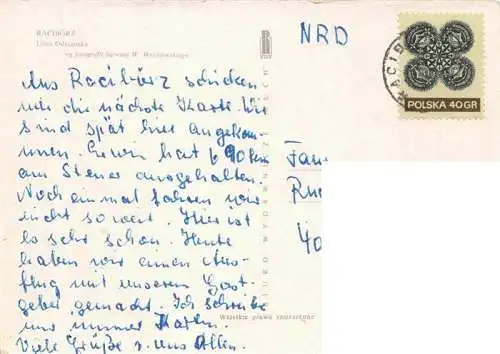 RACIBÓRZ
Ulica Odrzańska
wg fotografii barwnej W.
NRD
RACIB
POLSKA 40 GR
RUCH
BIURO WYDAWNICZE
Aus Racibórz schicken
wir die nächste Karte. Wir
sind spät hier angekom-
men. Erwin hat 690 km
am Steuer ausgehalten.
Noch einmal fahren wir
nicht so weit. Hier ist
es sehr schön. Heute
haben wir einen Aus-
flug mit unseren Gast-
geber gemacht. Ich schreibe
nur immer Karten.
Viele Grüße v. uns Allen.
Fam
40
Wszelkie prawa zastrzeżone